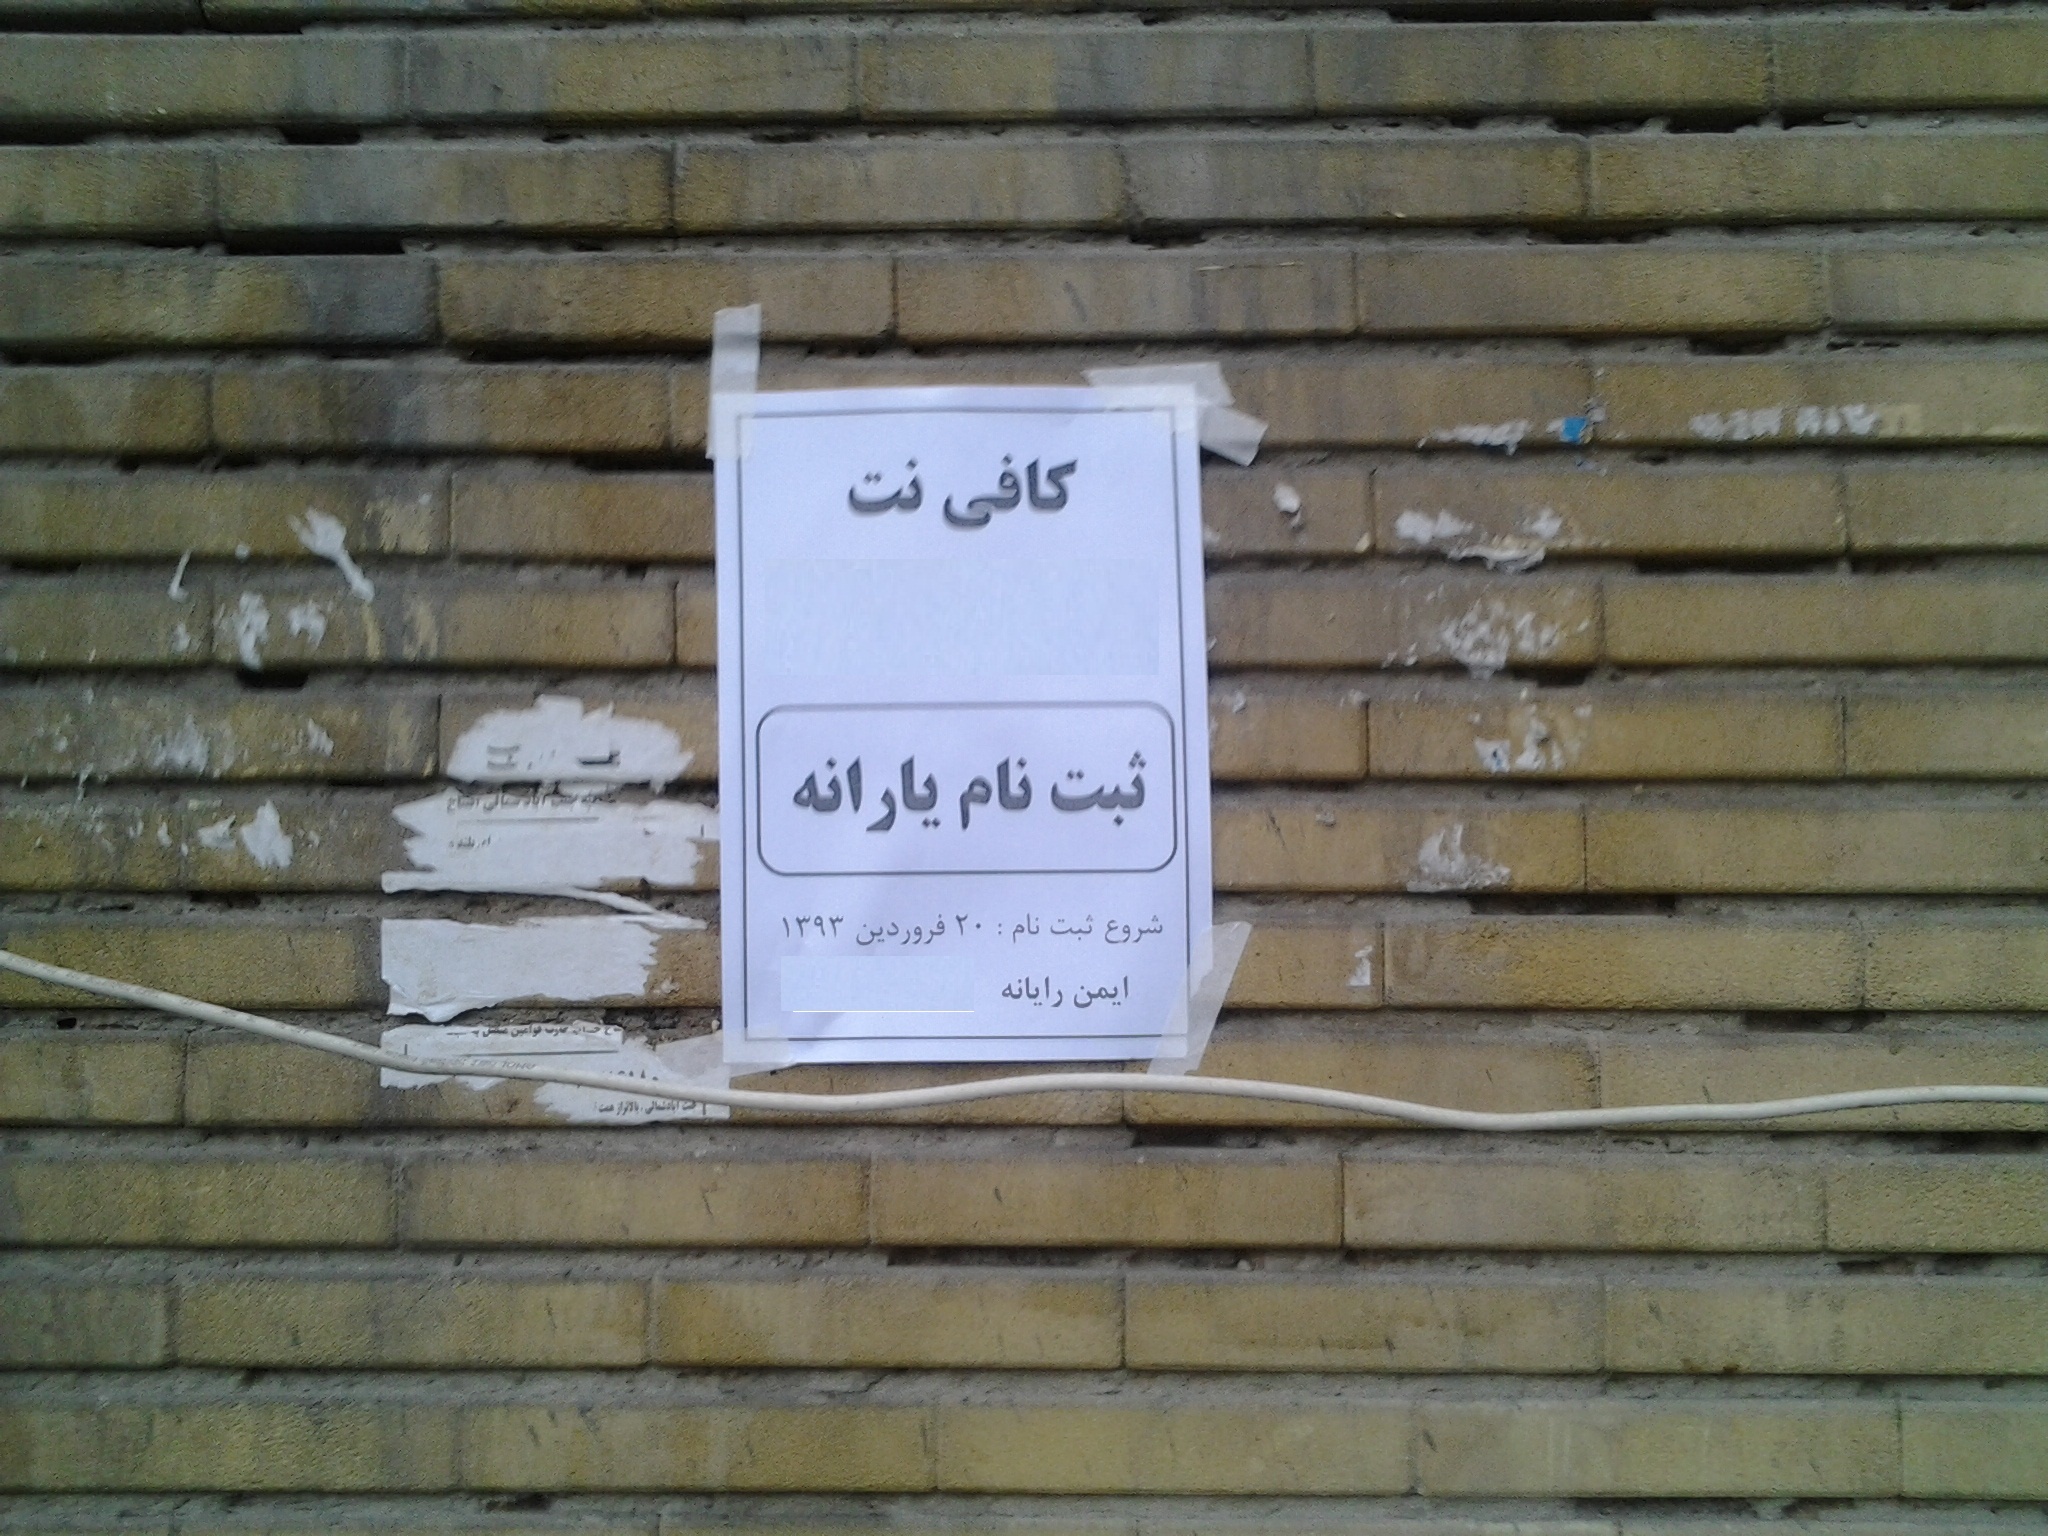 کافی نت
ثبت نام یارانه
شروع ثبت نام : ۲۰ فروردین ۱۳۹۳
ایمن رایانه